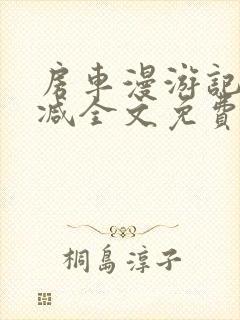 房車漫游記
减全文免費
桐島淳子